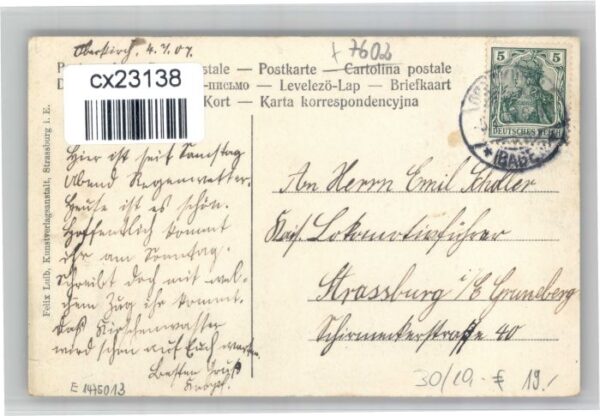 Oberkirch, 4.7.07.
+ 7602
stale — Postkarte — Cartolina postale
-письмо — Levelező-Lap — Briefkaart
Kort — Karta korrespondencyjna
cx23138
5 5
DEUTSCHES REICH
(BADEN)
Felix Luib, Kunstverlagsanstalt, Strassburg i. E.
Hier ist seit Samstag
Abend Regenwetter.
Heute ist es schön.
Hoffentlich kommt
ihr am Sonntag.
Schreibt doch mit wel-
chem Zug ihr kommt.
Das Kirschenwasser
wird schon auf Euch warten.
Besten Gruß
An Herrn Emil
Kais. Lokomotivführer
Strassburg i/E Gruneberg
Schirmeckerstraße 40
E 1475013
30/10.- € 19.-